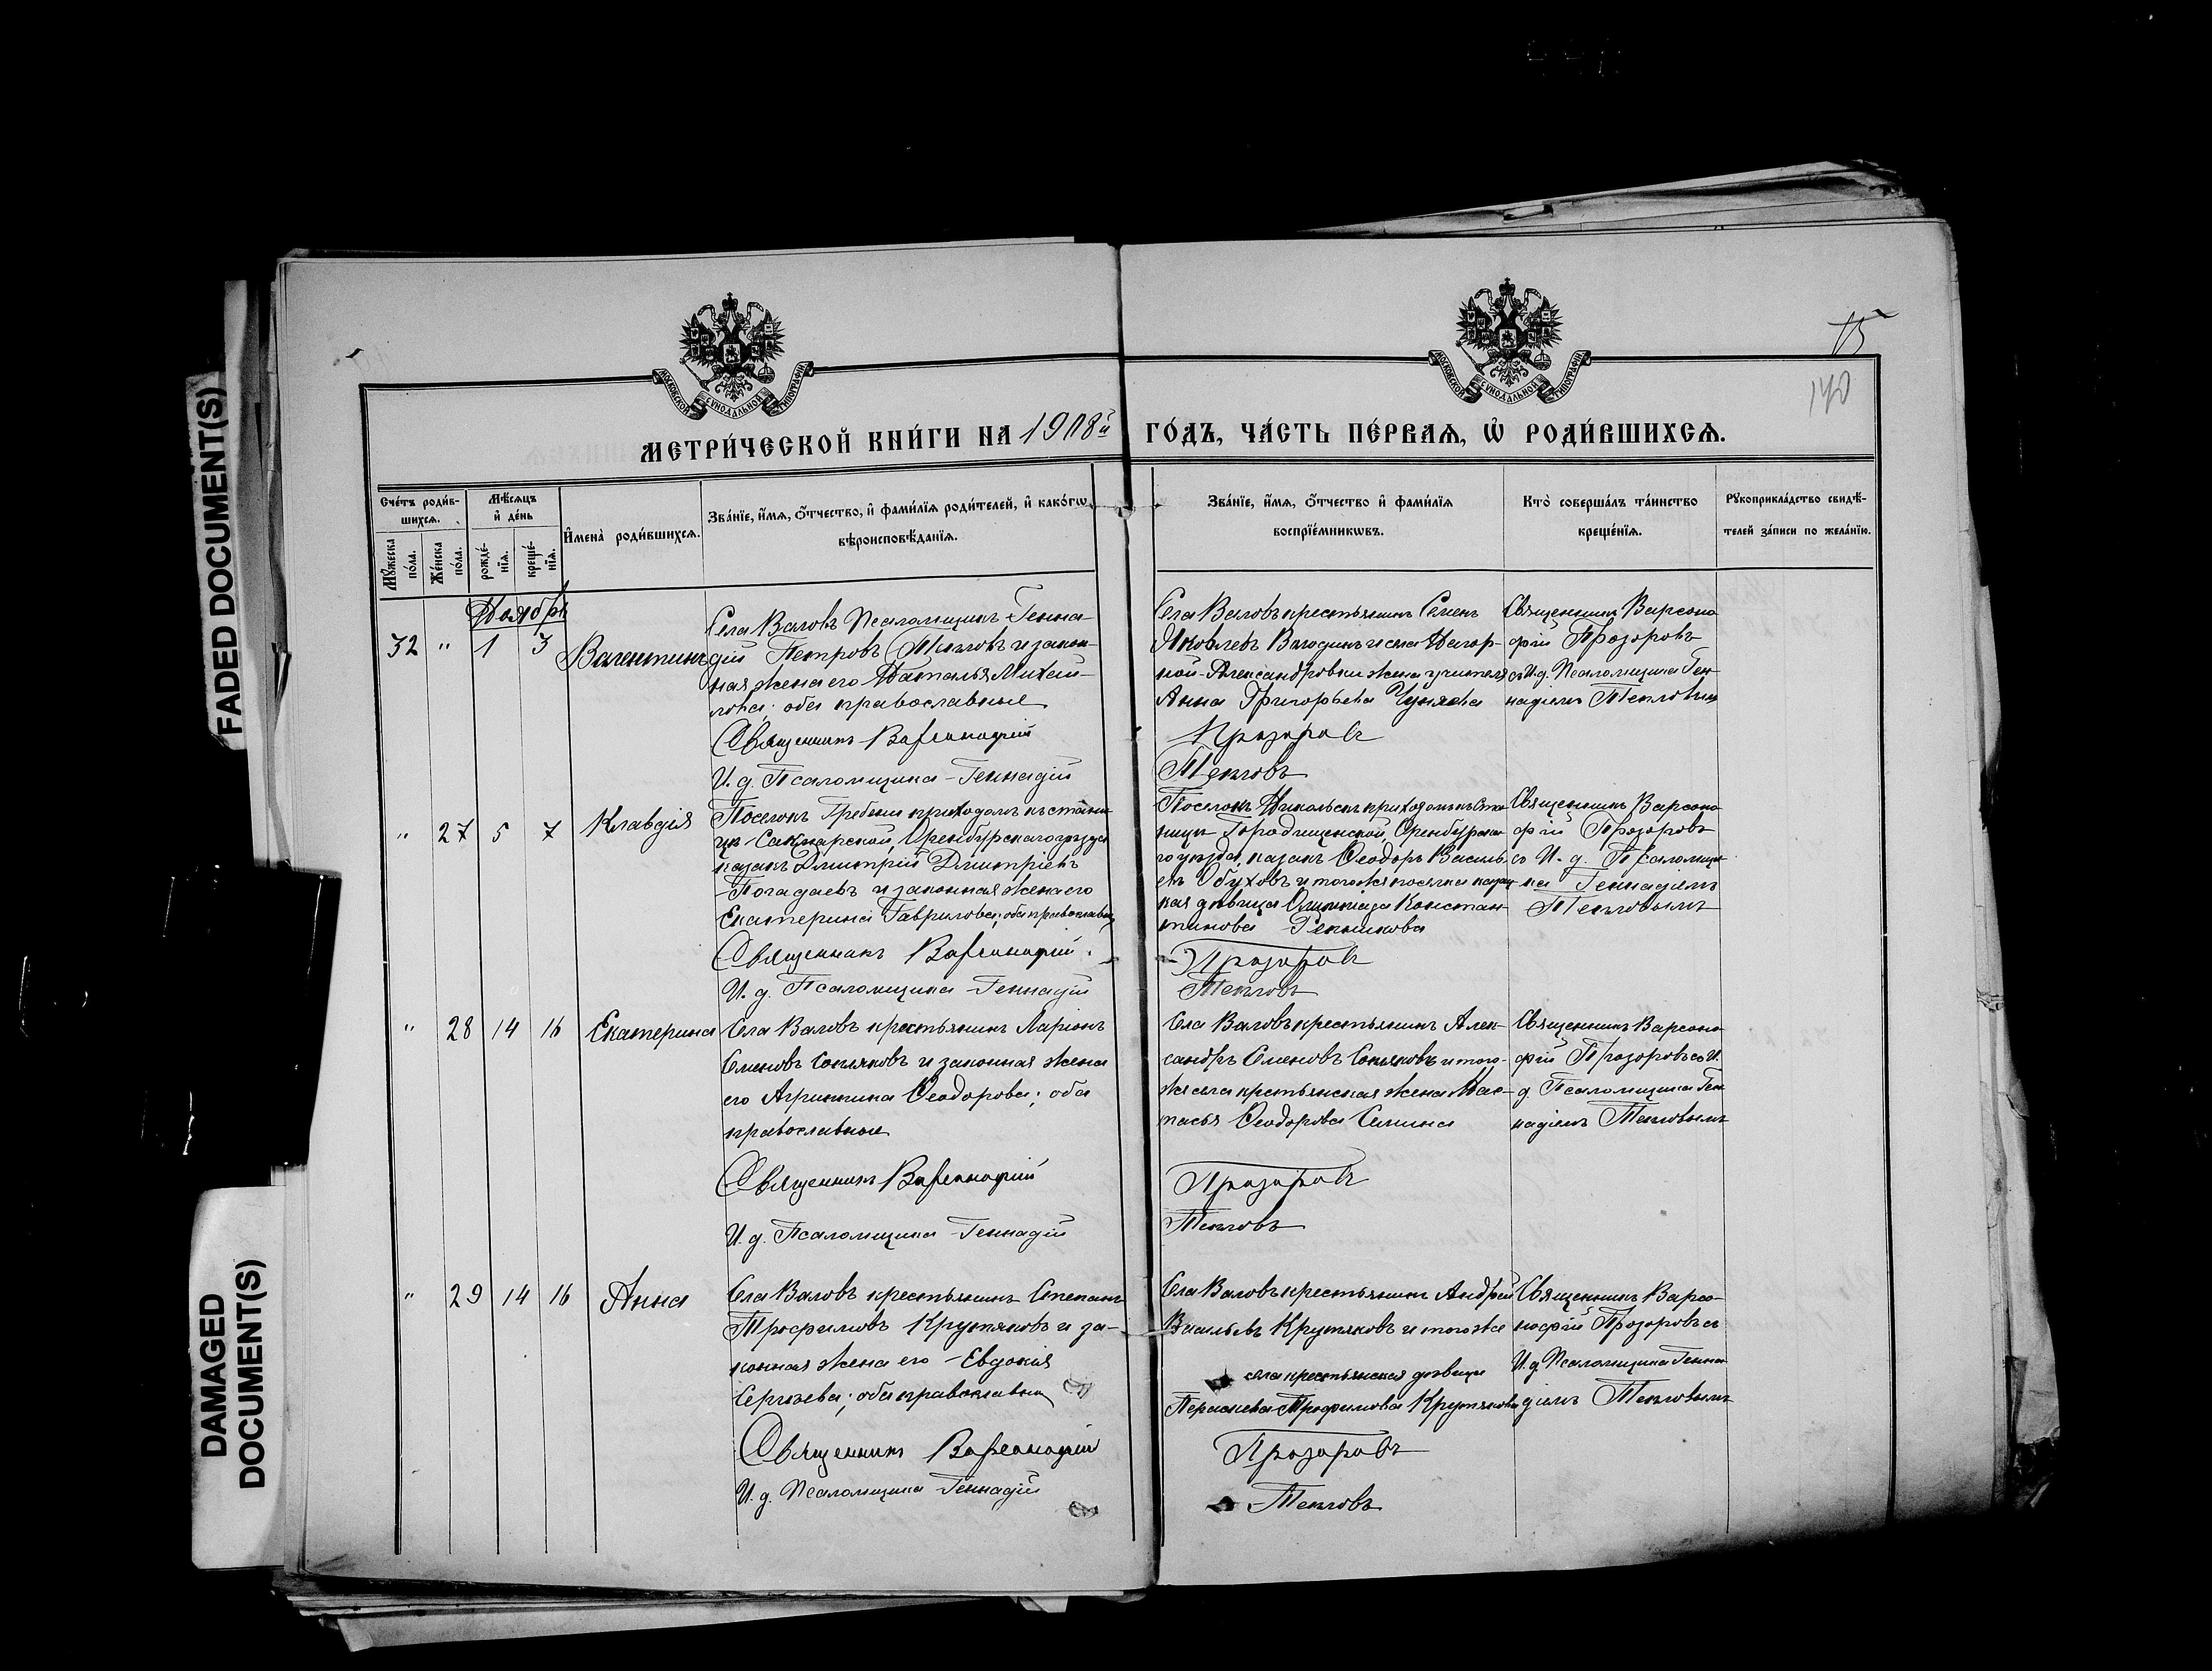 FADED DOCUMENT(S)
DAMAGED
DOCUMENT(S)
15
140
МОСКОВСКОЙ СѴНОДАЛЬНОЙ ТИПОГРАФІИ
МОСКОВСКОЙ СѴНОДАЛЬНОЙ ТИПОГРАФІИ
МЕТРИ́ЧЕСКОЙ КНИ́ГИ НА 1908й ГО́ДЪ, ЧА́СТЬ ПЕ́РВАЯ, Ѡ РОДИ́ВШИХСѦ.
Сче́тъ роди́в-
шихсѧ.
Мꙋжеска по́ла.
Же́нска по́ла.
Мѣ́сяцъ
и де́нь
рожде́-
нїѧ.
креще́-
нїѧ.
Имена̀ роди́вшихсѧ.
Зва́нїе, и́мѧ, ѻ́тчество, и фами́лїѧ роди́телей, и како́гѡ
вѣроисповѣ́данїѧ.
Зва́нїе, и́мѧ, ѻ́тчество и фами́лїѧ
воспрїе́мникѡвъ.
Кто̀ соверша́лъ та́инство
креще́нїѧ.
Рꙋкоприкла́дство свидѣ́-
телей за́писи по жела́нїю.
Ноябрь
32 " 1 3 Валентинъ
Села Валовъ Псаломщикъ Генна-
дій Петровъ Тепловъ и закон-
ная жена его Наталья Михай-
лова; оба православные
Священникъ Варсонофій
И. д. Псаломщика Геннадій
Села Валовъ крестьянинъ Семенъ
Яковлевъ и села Нагор-
ной-Александровки жена учителя
Анна Григорьева
Прозоровъ
Тепловъ
Священникъ Варсоно
фій Прозоровъ
съ И.д. Псаломщика Ген-
надіемъ Тепловым
" 27 5 7 Клавдія
Поселокъ Гребени приходомъ къ стани
цѣ Сакмарской, Оренбургскаго уѣзда
казакъ Димитрій Димитріевъ
Погадаевъ и законная жена его
Екатерина Гаврилова; оба православны
Священникъ Варсонофій
И. д. Псаломщика Геннадій
Поселокъ Никольскъ приходомъ къ Ста
ницѣ Городищенской, Оренбургска
го уѣзда, казакъ Ѳеодоръ Василь
евъ Обуховъ и того же поселка казач
кая дѣвица Олимпіада Констан
тинова
Прозоровъ
Тепловъ
Священникъ Варсоно
фій Прозоровъ
съ И. д. Псаломщи
ка Геннадіемъ
Тепловымъ
" 28 14 16 Екатерина
Села Валовъ крестьянинъ Ларіонъ
Семеновъ и законная жена
его Агриппина Ѳеодорова; оба
православные
Священникъ Варсонофій
И. д. Псаломщика Геннадій
Села Валовъ крестьянинъ Алек-
сандръ Семеновъ и того-
же села крестьянская жена Нас-
тасья Ѳеодорова Семина
Прозоровъ
Тепловъ
Священникъ Варсоно
фій Прозоровъ съ И.
д. Псаломщика Ген
надіемъ Тепловымъ
" 29 14 16 Анна
Села Валовъ крестьянинъ Степанъ
Трофимовъ Крутяковъ и за-
конная жена его Евдокія
Сергѣева; оба православны
Священникъ Варсонофій
И. д. Псаломщика Геннадій
Села Валовъ крестьянинъ Андрей
Васильевъ Крутяковъ и того же
села крестьянская дѣвица
Параскева Трофимова Крутякова
Прозоровъ
Тепловъ
Священникъ Варсо
нофій Прозоровъ съ
И.д. Псаломщика Генна
діемъ Тепловымъ